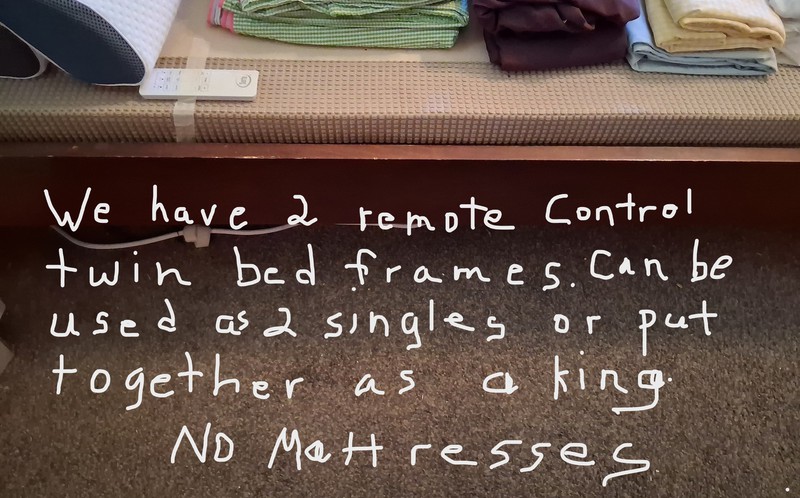 We have 2 remote Control
twin bed frames. Can be
used as 2 singles or put
together as a king.
NO Mattresses